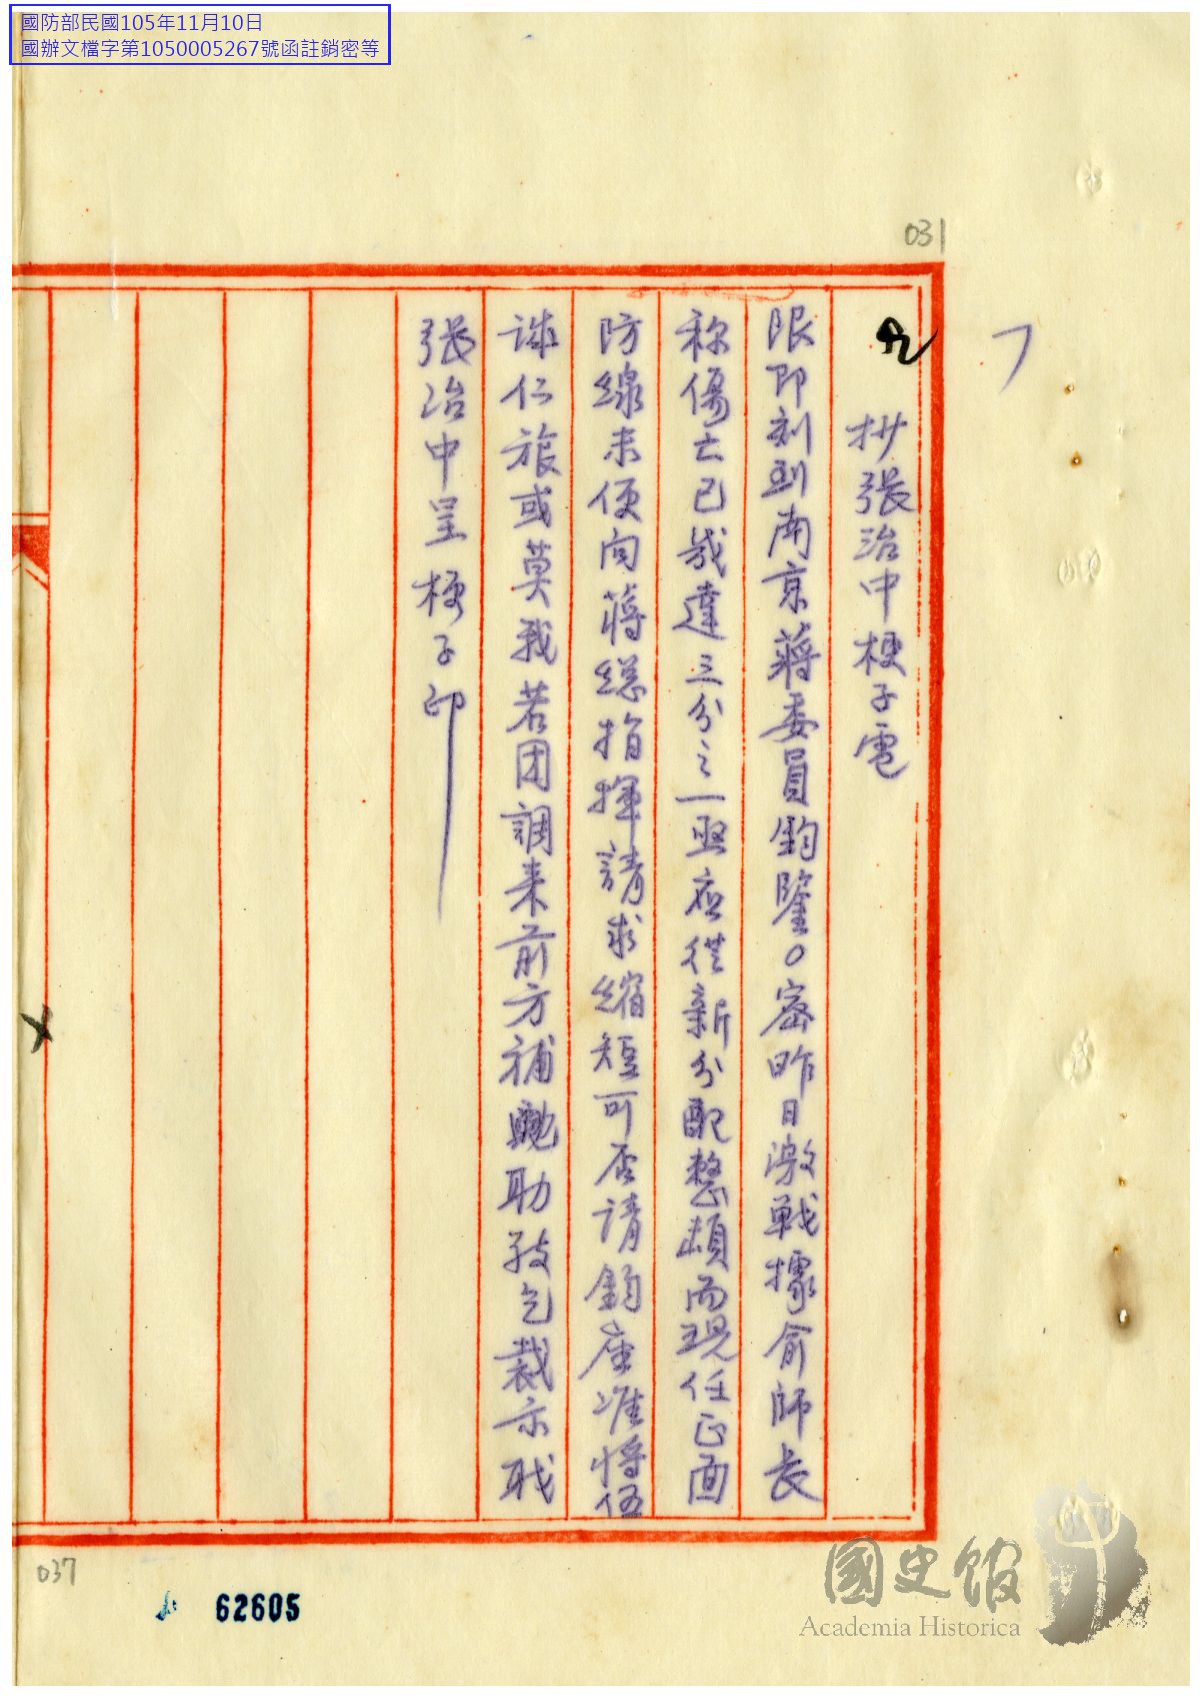 國防部民國105年11月10日
國辦文檔字第1050005267號函註銷密等
031
抄張治中梗子電
限即刻到南京蔣委員鈞鑒○密昨日激戰據俞師長
称傷亡已幾達三分之一亟应從新分配整頓而現任正面
防線未便向蔣總指揮請求縮短可否請鈞座准將伍
誠仁旅或莫我若团調来前方補助敬乞裁示职
張治中呈梗子印
037
62605
國史館
Academia Historica